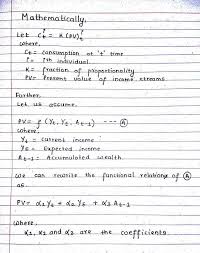 Mathematically,
Let C_t^i = K (PV)_t^i
where,
Ct = consumption at 't' time
i = ith individual.
K = fraction of proportionality
PV = Present value of income streams
Further,
Let us assume.
PV = f (Yt, YE, At-1) --- Ⓐ
where,
Yt = current income
YE = Expected income
At-1 = Accumulated wealth.
We can rewrite the functional relationg of Ⓐ
as.
PV = α1 Yt + α2 YE + α3 At-1
where,
α1, α2 and α3 are the coefficients